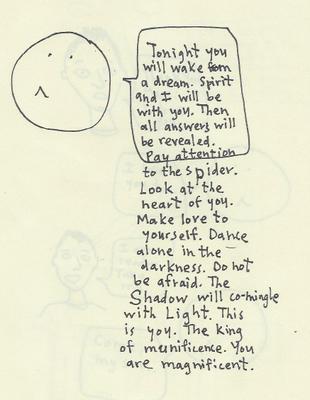 Tonight you
will wake from
a dream. Spirit
and I will be
with you. Then
all answers will
be revealed.
Pay attention
to the spider.
Look at the
heart of you.
Make love to
yourself. Dance
alone in the
darkness. Do not
be afraid. The
Shadow will co-mingle
with Light. This
is you. The king
of munificence. You
are magnificent.